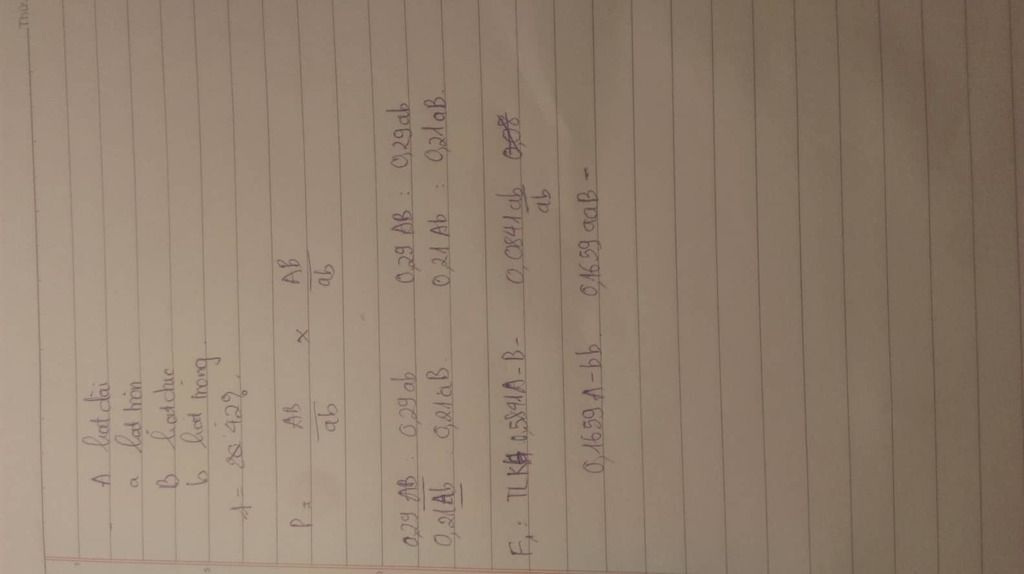 A hạt dài
a hạt tròn
B hạt đục
b hạt trong
P: AB/ab × AB/ab
0,29 AB : 0,29 ab 0,29 AB : 0,29 ab
0,21 Ab : 0,21 aB 0,21 Ab : 0,21 aB.
F1: TLKH 0,5841 A-B- 0,0841 ab/ab
0,1659 A-bb 0,1659 aaB-